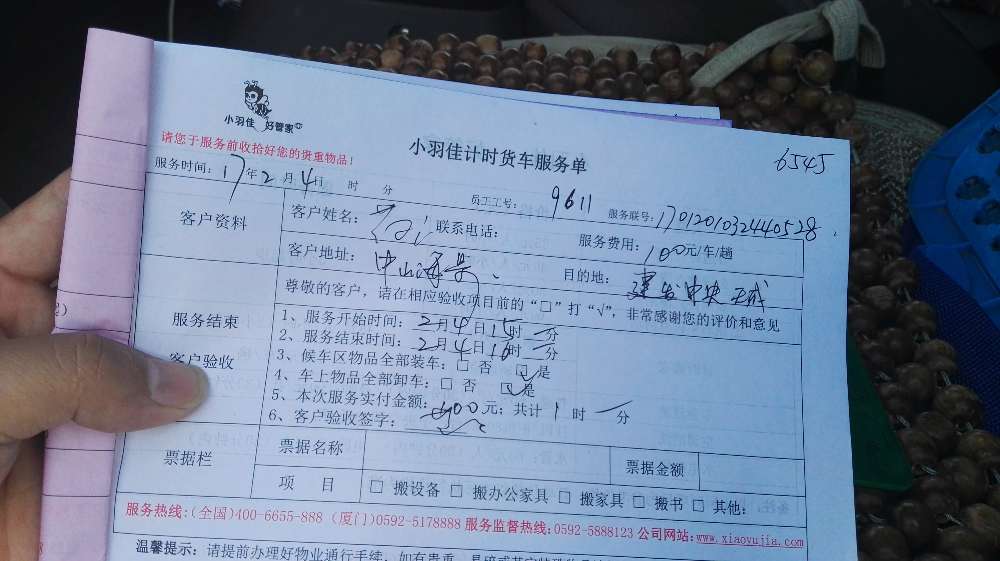 小羽佳 好管家
小羽佳计时货车服务单
6545
请您于服务前收拾好您的贵重物品！
服务时间：17年2月4日 时 分 员工工号：9611 服务联号：170120103244 0528
客户资料 客户姓名： 联系电话： 服务费用：100元/车/趟
客户地址：中山海景 目的地：建发中央天成
尊敬的客户，请在相应验收项目前的“□”打“√”，非常感谢您的评价和意见
服务结束
客户验收
1、服务开始时间：2月4日15时一分
2、服务结束时间：2月4日16时一分
3、候车区物品全部装车：□ 否 ☑ 是
4、车上物品全部卸车：□ 否 ☑ 是
5、本次服务实付金额：100元；共计1时一分
6、客户验收签字：
票据栏 票据名称 票据金额
项 目 □ 搬设备 □ 搬办公家具 □ 搬家具 □ 搬书 □ 其他：
服务热线：(全国)400-6655-888 (厦门)0592-5178888 服务监督热线：0592-5888123 公司网站：www.xiaoyujia.com
温馨提示：请提前办理好物业通行手续，如有贵重、易碎或其它特殊物品